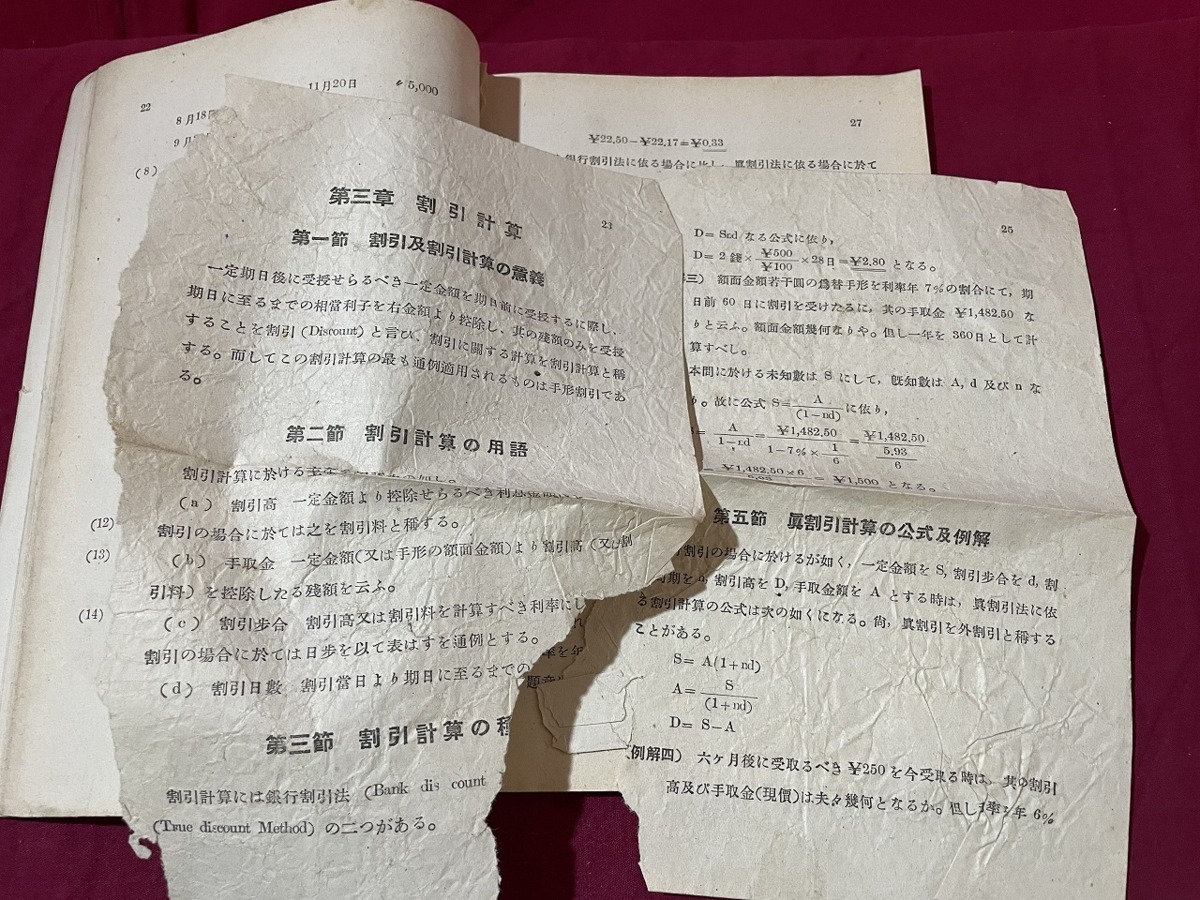 22
11月20日 〃5,000
8月18日
9月
(8)
(12)
(13)
(14)
23
第三章 割引計算
第一節 割引及割引計算の意義
一定期日後に受授せらるべき一定金額を期日前に受授するに際し、
期日に至るまでの相當利子を右金額より控除し、其の殘額のみを受授
することを割引 (Discount) と言ひ、割引に關する計算を割引計算と稱
する。而してこの割引計算の最も通例適用されるものは手形割引であ
る。
第二節 割引計算の用語
割引計算に於ける
(a) 割引高 一定金額より控除せらるべき利息金額にし
割引の場合に於ては之を割引料と稱する。
(b) 手取金 一定金額(又は手形の額面金額)より割引高(又は割
引料)を控除したる殘額を云ふ。
(c) 割引歩合 割引高又は割引料を計算すべき利率にし
割引の場合に於ては日歩を以て表はすを通例とする。
(d) 割引日數 割引當日より期日に至るまでの
第三節 割引計算の種
割引計算には銀行割引法 (Bank dis count
(True discount Method) の二つがある。
27
¥22,50−¥22,17=¥0,33
銀行割引法に依る場合に比し、眞割引法に依る場合に於て
25
D= Snd なる公式に依り,
D= 2錢× ¥500/¥100 ×28日=¥2,80 となる。
三) 額面金額若干圓の爲替手形を利率年 7%の割合にて, 期
日前 60 日に割引を受けたるに, 其の手取金 ¥1,482,50 な
りと云ふ。額面金額幾何なりや。但し一年を 360日として計
算すべし。
本問に於ける未知數は S にして, 旣知數は A, d 及び n な
り。故に公式 S= A/(1−nd) に依り,
= A/1−nd = ¥1,482,50/1−7%×1/6 = ¥1,482,50/5,93/6
= ¥1,482,50×6/5,93 = ¥1,500 となる。
第五節 眞割引計算の公式及例解
割引の場合に於けるが如く, 一定金額を S, 割引歩合を d, 割
引期を n, 割引高を D, 手取金額を A とする時は, 眞割引法に依
る割引計算の公式は次の如くになる。尙, 眞割引を外割引と稱する
ことがある。
S= A(1+nd)
A= S/(1+nd)
D= S−A
(例解四) 六ケ月後に受取るべき ¥250 を今受取る時は, 其の割引
高及び手取金(現價)は夫々幾何となるか。但し利率を年 6%